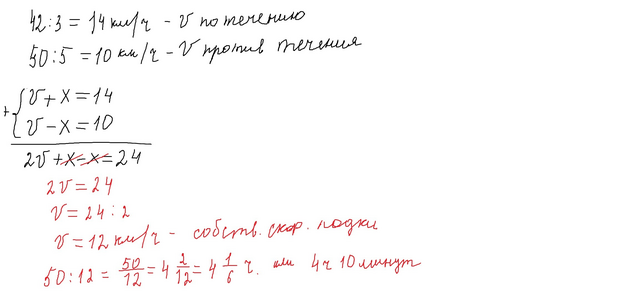 42:3 = 14 км/ч - v по течению
50:5 = 10 км/ч - v против течения
+ { v + x = 14
v - x = 10
2v + x - x = 24
2v = 24
v = 24 : 2
v = 12 км/ч - собств. скор. лодки
50:12 = 50/12 = 4 2/12 = 4 1/6 ч. или 4 ч 10 минут